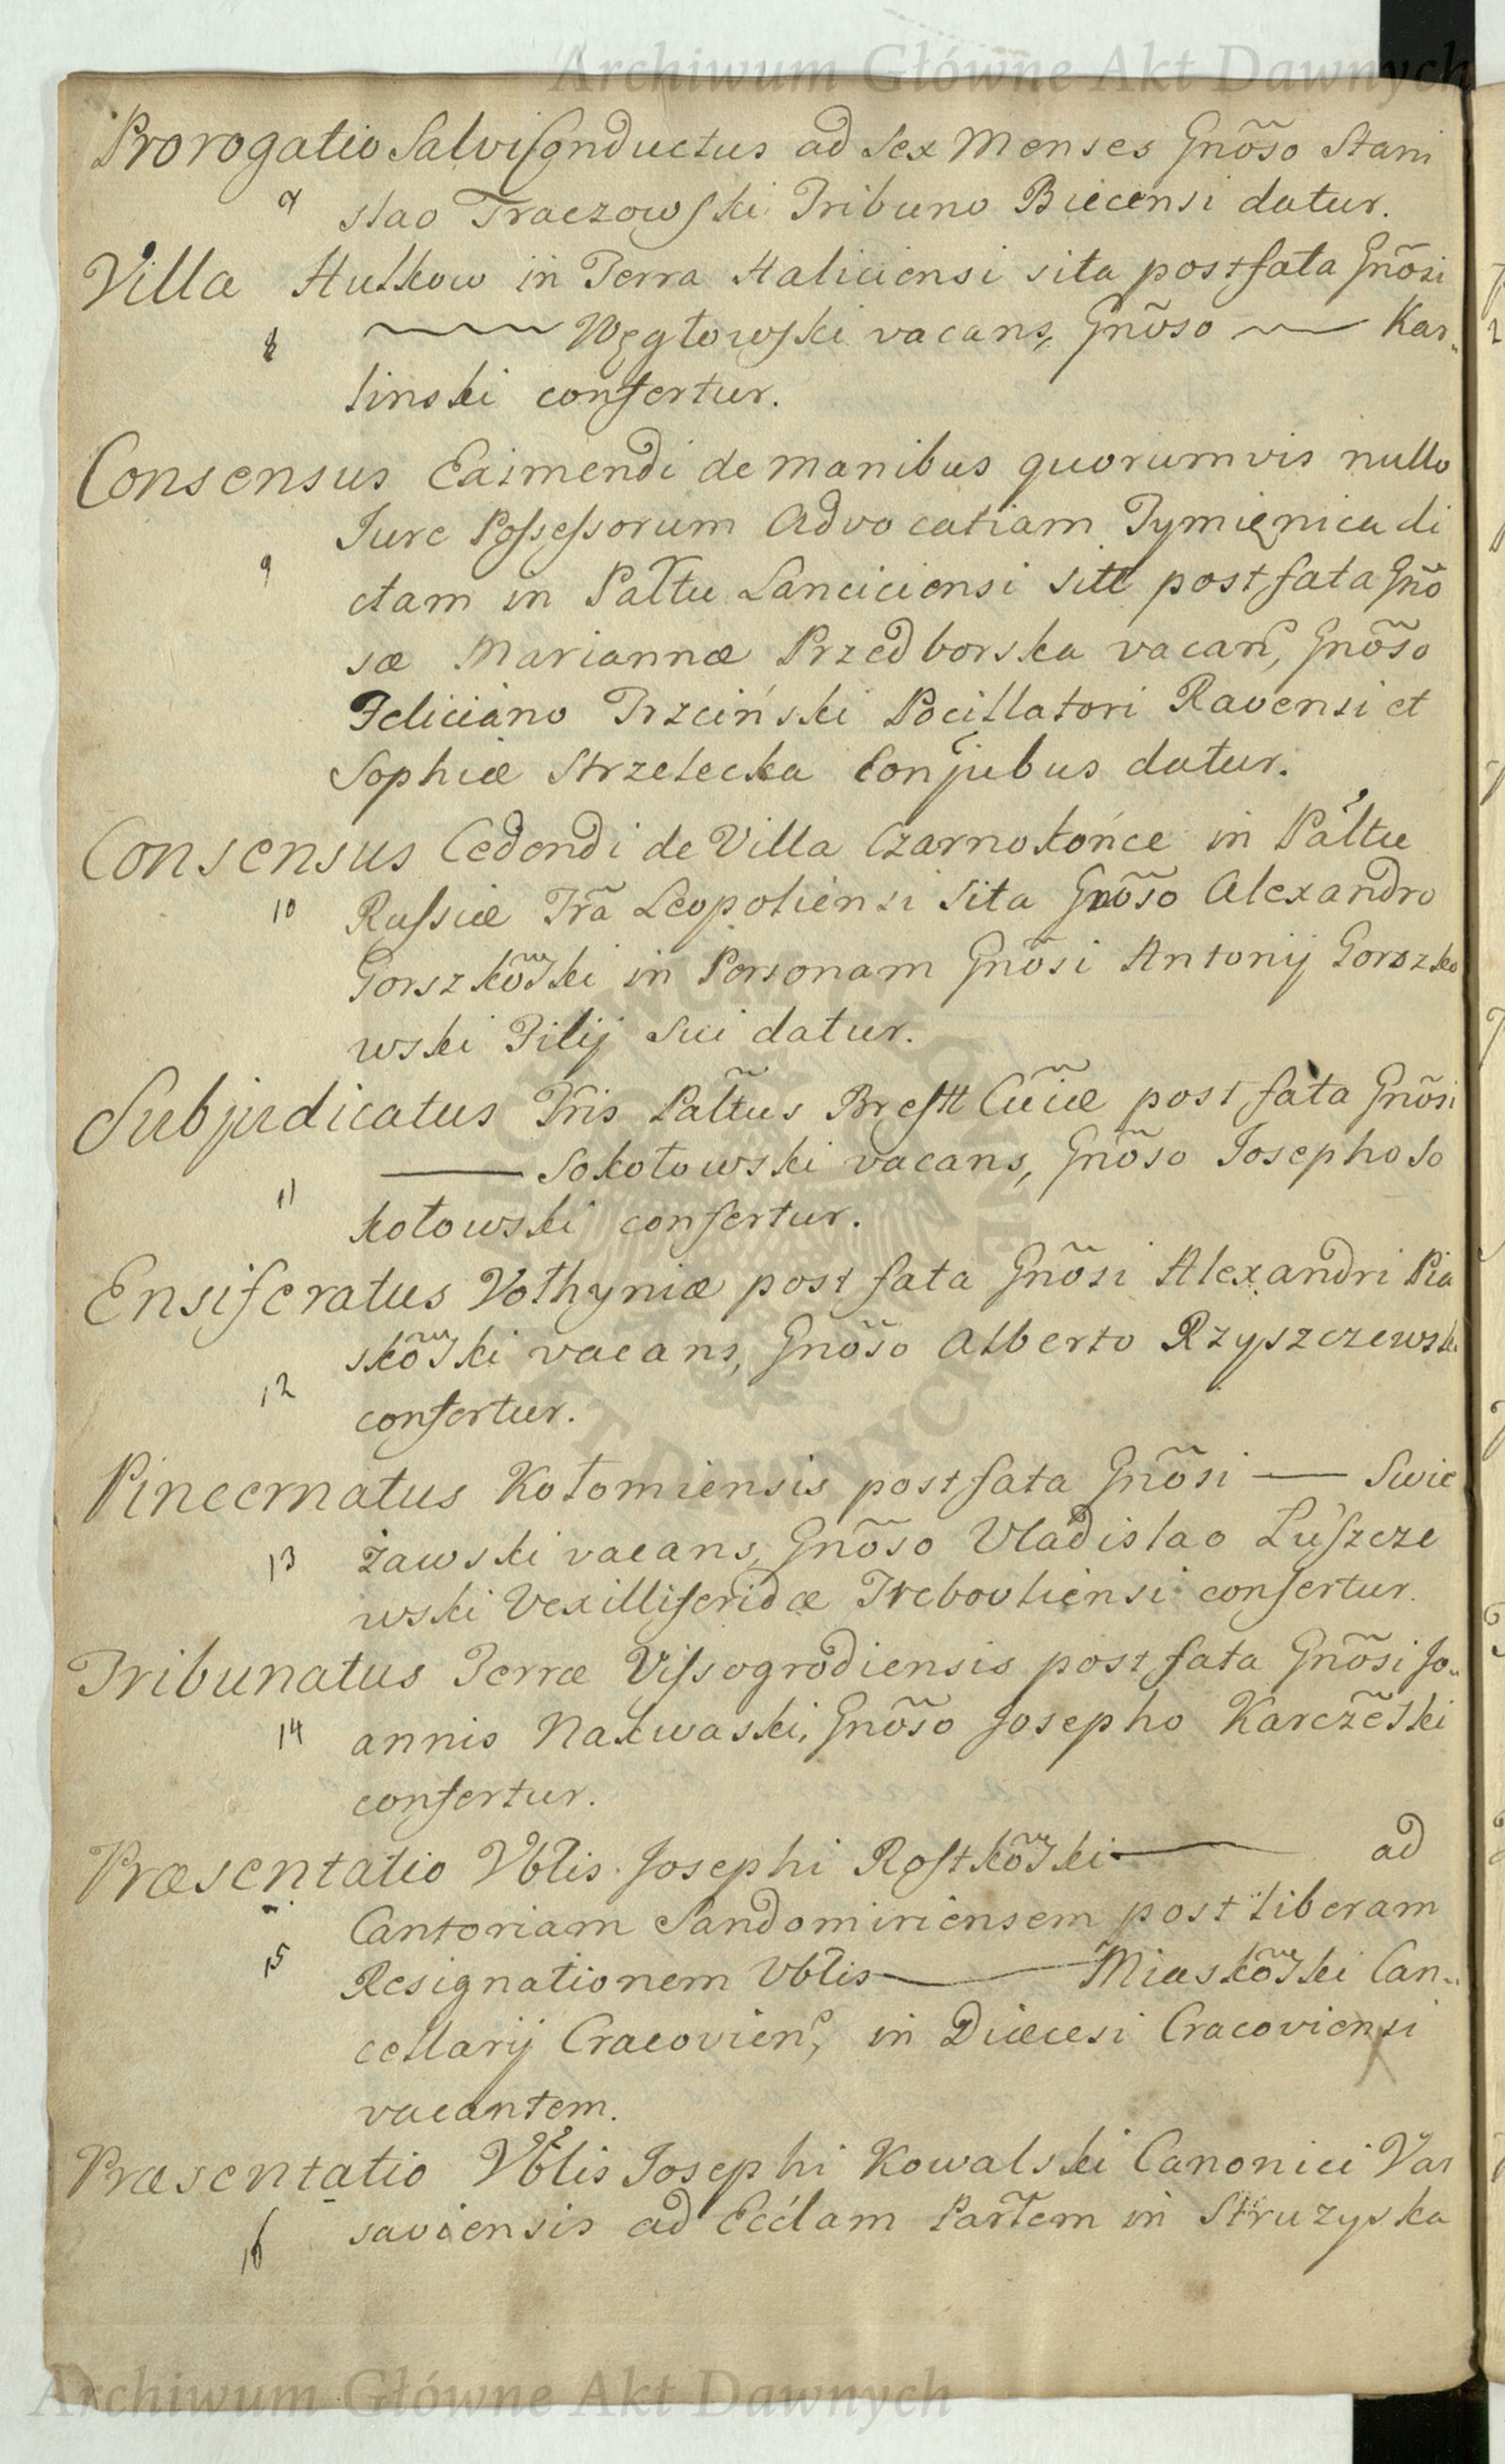 Archiwum Główne Akt Dawnych
Prorogatio Salvi Conductus ad Sex Menses Gnõso Stani
slao Traczowski Tribuno Biecensi datur.
Villa Hutkow in Terra Haliciensi sita post fata Gnõsi
8 Węgłowski vacans, Gnõso Kar„
linski confertur.
Consensus Eximendi de manibus quorumvis nullo
Jure Possessorum Advocatiam Tymięnica di
9 ctam in Paltu Lanciciensi sitt post fata Gnõ
sæ Mariannæ Przedborska vacan, Gnõso
Feliciano Trzciński Pocillatori Ravensi et
Sophiæ Strzelecka Conjubus datur.
Consensus Cedendi de Villa Czarnokońce in Paltu
10 Russiæ Trã Leopoliensi Sita Gnõso Alexandro
Gorszkõwski in Personam Gnõsi Antonij Gorszko
wski Filij Sui datur.
Subjudicatus Tris Paltus Brestt Cuiæ post fata Gnõsi
Sokołowski vacans, Gnõso Josepho So
11 kołowski confertur.
Ensiferatus Volhyniæ post fata Gnõsi Alexandri Pia
skõwski vacans, Gnõso Alberto Rzyszczewski
12 confertur.
Pincernatus Kołomiensis post fata Gnõsi — Swie
13 żawski vacans, Gnõso Vladislao Łuszcze
wski Vexilliferidæ Trebovliensi confertur.
Tribunatus Terræ Vissogrodiensis post fata Gnõsi Jo„
14 annis Nakwaski, Gnõso Josepho Karczẽski
confertur.
Præsentatio Vblis Josephi Rostkõwski ad
Cantoriam Sandomiriensem post liberam
15 Resignationem Vblis Miaskõwski Can„
cellarij Cracovien, in Diæcesi Cracoviensi
vacantem.
Præsentatio Vblis Josephi Kowalski Canonici Var
16 saviensis ad Eccłam Partem in Struzyska
Archiwum Główne Akt Dawnych